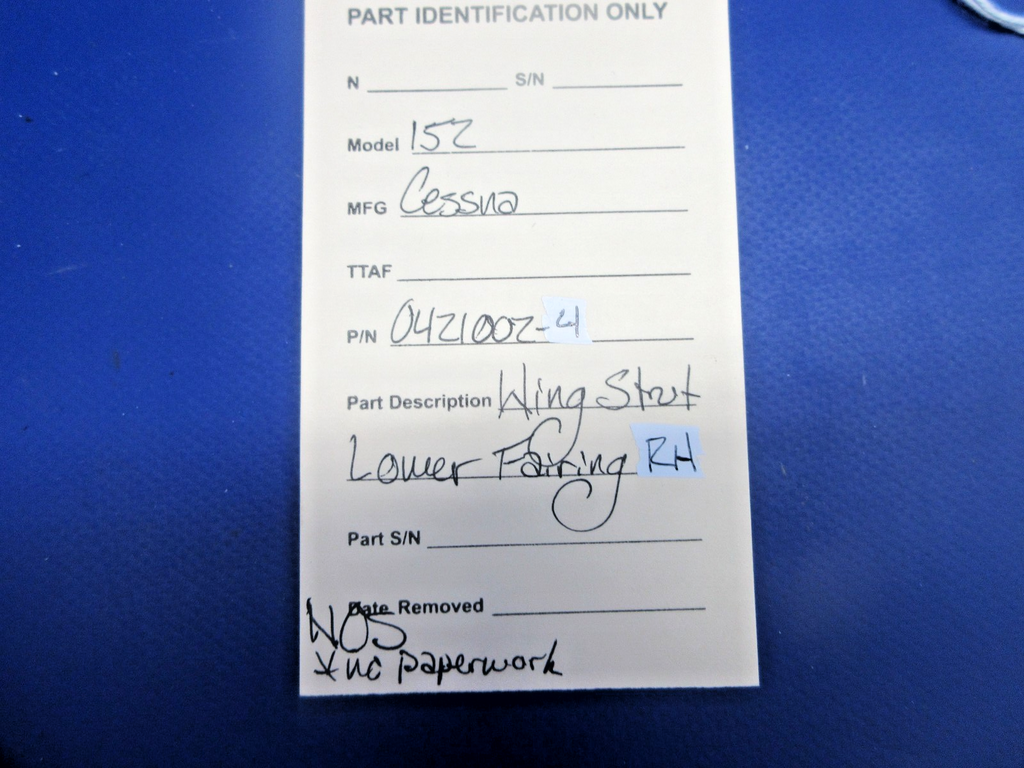 PART IDENTIFICATION ONLY
N S/N
Model 152
MFG Cessna
TTAF
P/N 0421002-4
Part Description Wing Strut
Lower Fairing RH
Part S/N
Date Removed
NOS
*no paperwork